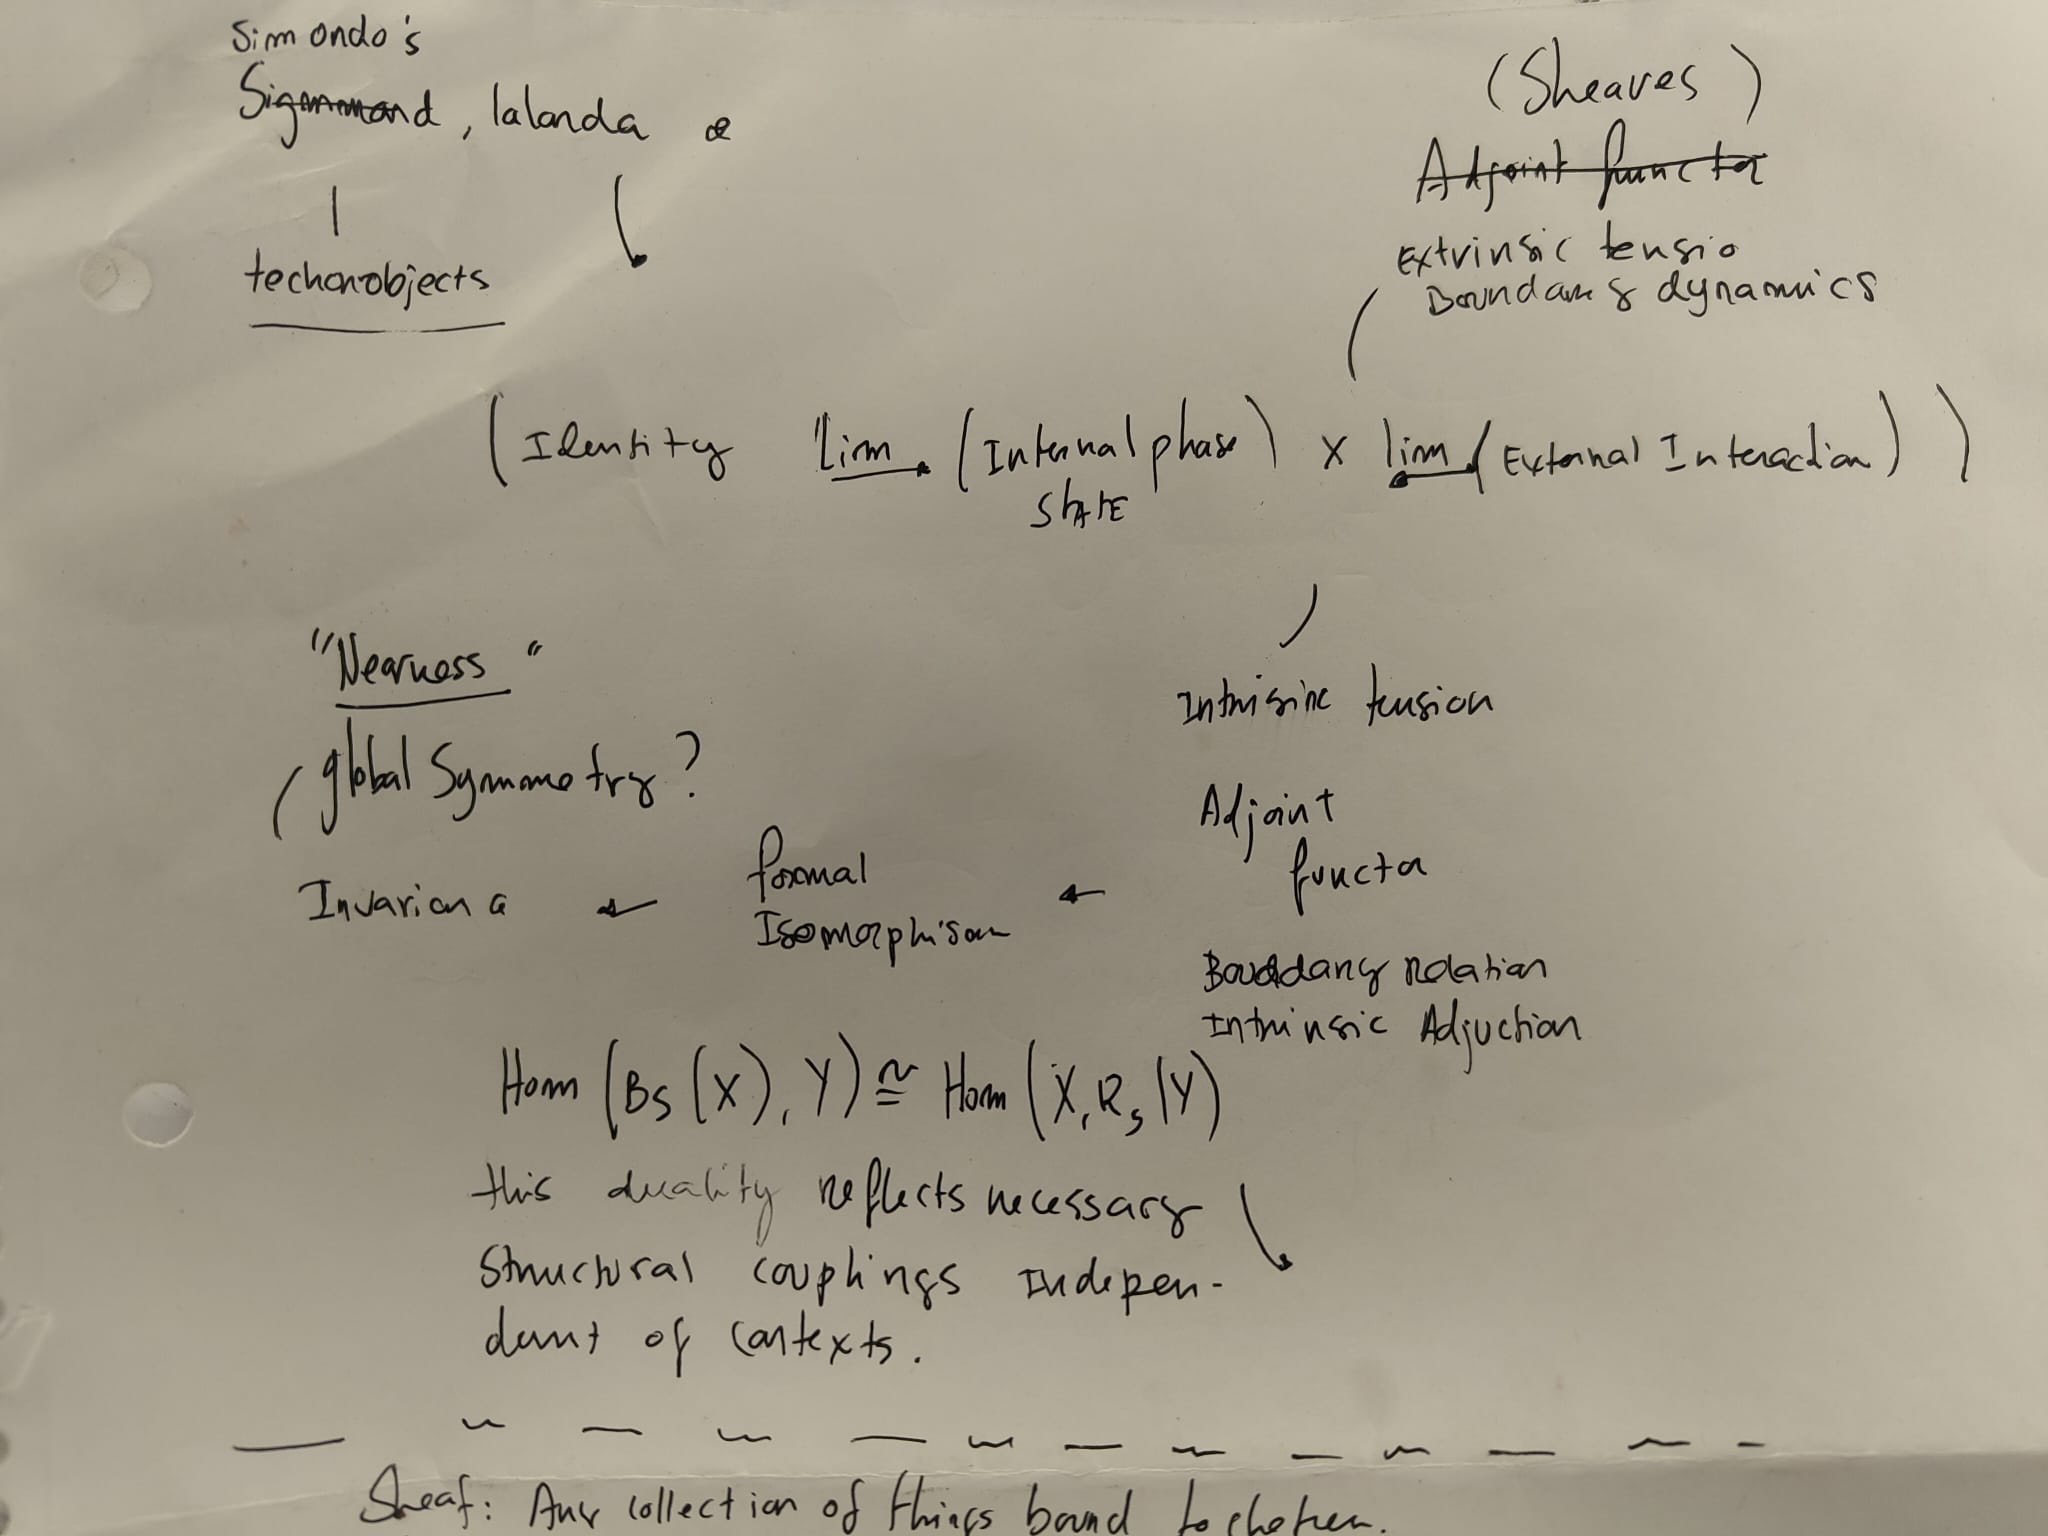 Simondo's
Sigmmand, lalanda &
(Sheaves)
Adjoint functor
techonobjects
Extrinsic tensio
Boundary dynamics
(Identity "Lim (Internal phase) x lim (External Interaction))
STATE
"Nearness"
Intrisinc tension
global Symmetry?
Adjoint
functor
formal
Invariance
Isomorphism
Bouddary relation
Intrinsic Adjuction
Hom (Bs (X), Y) ≅ Hom (X, Rs |Y)
this duality reflects necessary
structural couplings indepen-
dent of contexts.
Sheaf: Any collection of things bound together.